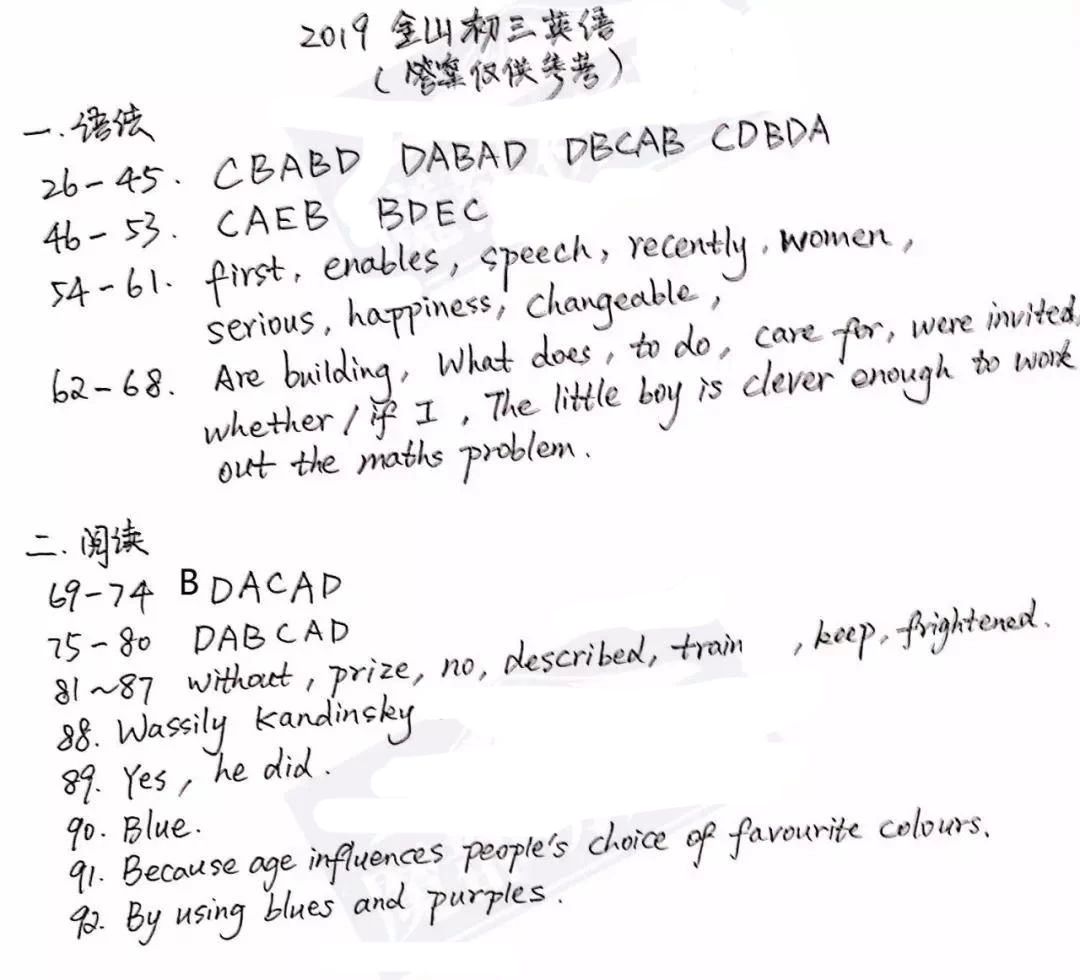 2019 金山初三英语
(答案仅供参考)
一. 语法
26-45. CBABD DABAD DBCAB CDBDA
46-53. CAEB BDEC
54-61. first, enables, speech, recently, women,
serious, happiness, changeable,
62-68. Are building, What does, to do, care for, were invited,
whether / if I, The little boy is clever enough to work
out the maths problem.
二. 阅读
69-74 BDACAD
75-80 DABCAD
81~87 without, prize, no, described, train , keep, frightened.
88. Wassily Kandinsky
89. Yes, he did.
90. Blue.
91. Because age influences people's choice of favourite colours.
92. By using blues and purples.